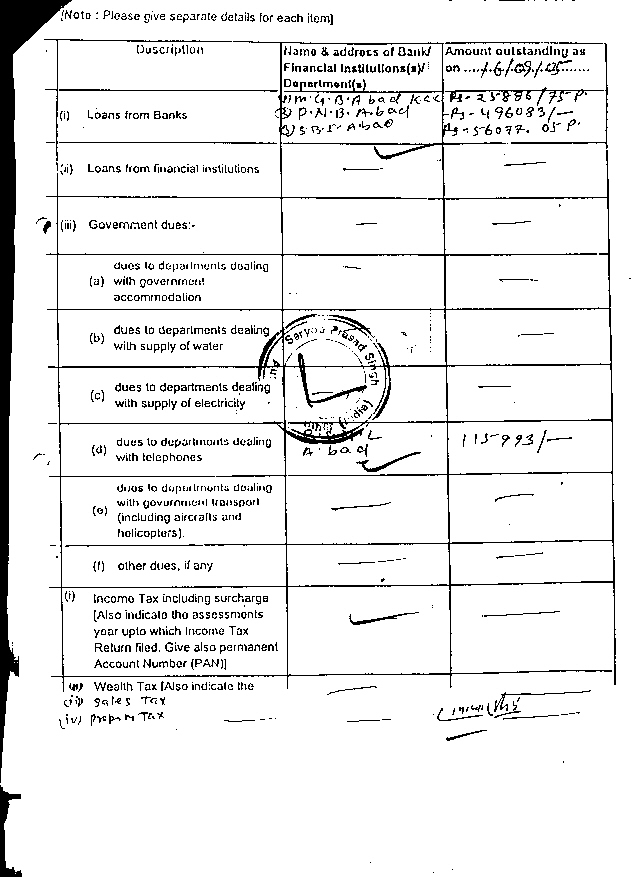 [Note : Please give separate details for each item]
Description
Name & address of Bank/
Financial Institutions(s)/
Department(s)
Amount outstanding as
on ....16/09/05......
(i) Loans from Banks
1) M.G.B.A bad KCC
2) P.N.B. A.bad
3) S.B.I. A.bad
Rs-25886/75 P.
Rs-496083/-
Rs-56077. 05 P.
(ii) Loans from financial institutions
(iii) Government dues:-
dues to departments dealing
(a) with government
accommodation
(b) dues to departments dealing
with supply of water
Saryoo Prasad Singh
(India)
(c) dues to departments dealing
with supply of electricity
(d) dues to departments dealing
with telephones
A.bad
115993/-
dues to departments dealing
(e) with government transport
(including aircrafts and
helicopters).
(f) other dues, if any
(i) Income Tax including surcharge
[Also indicate the assessments
year upto which Income Tax
Return filed. Give also permanent
Account Number (PAN)]
(ii) Wealth Tax [Also indicate the
(iii) Sales Tax
(iv) Tax